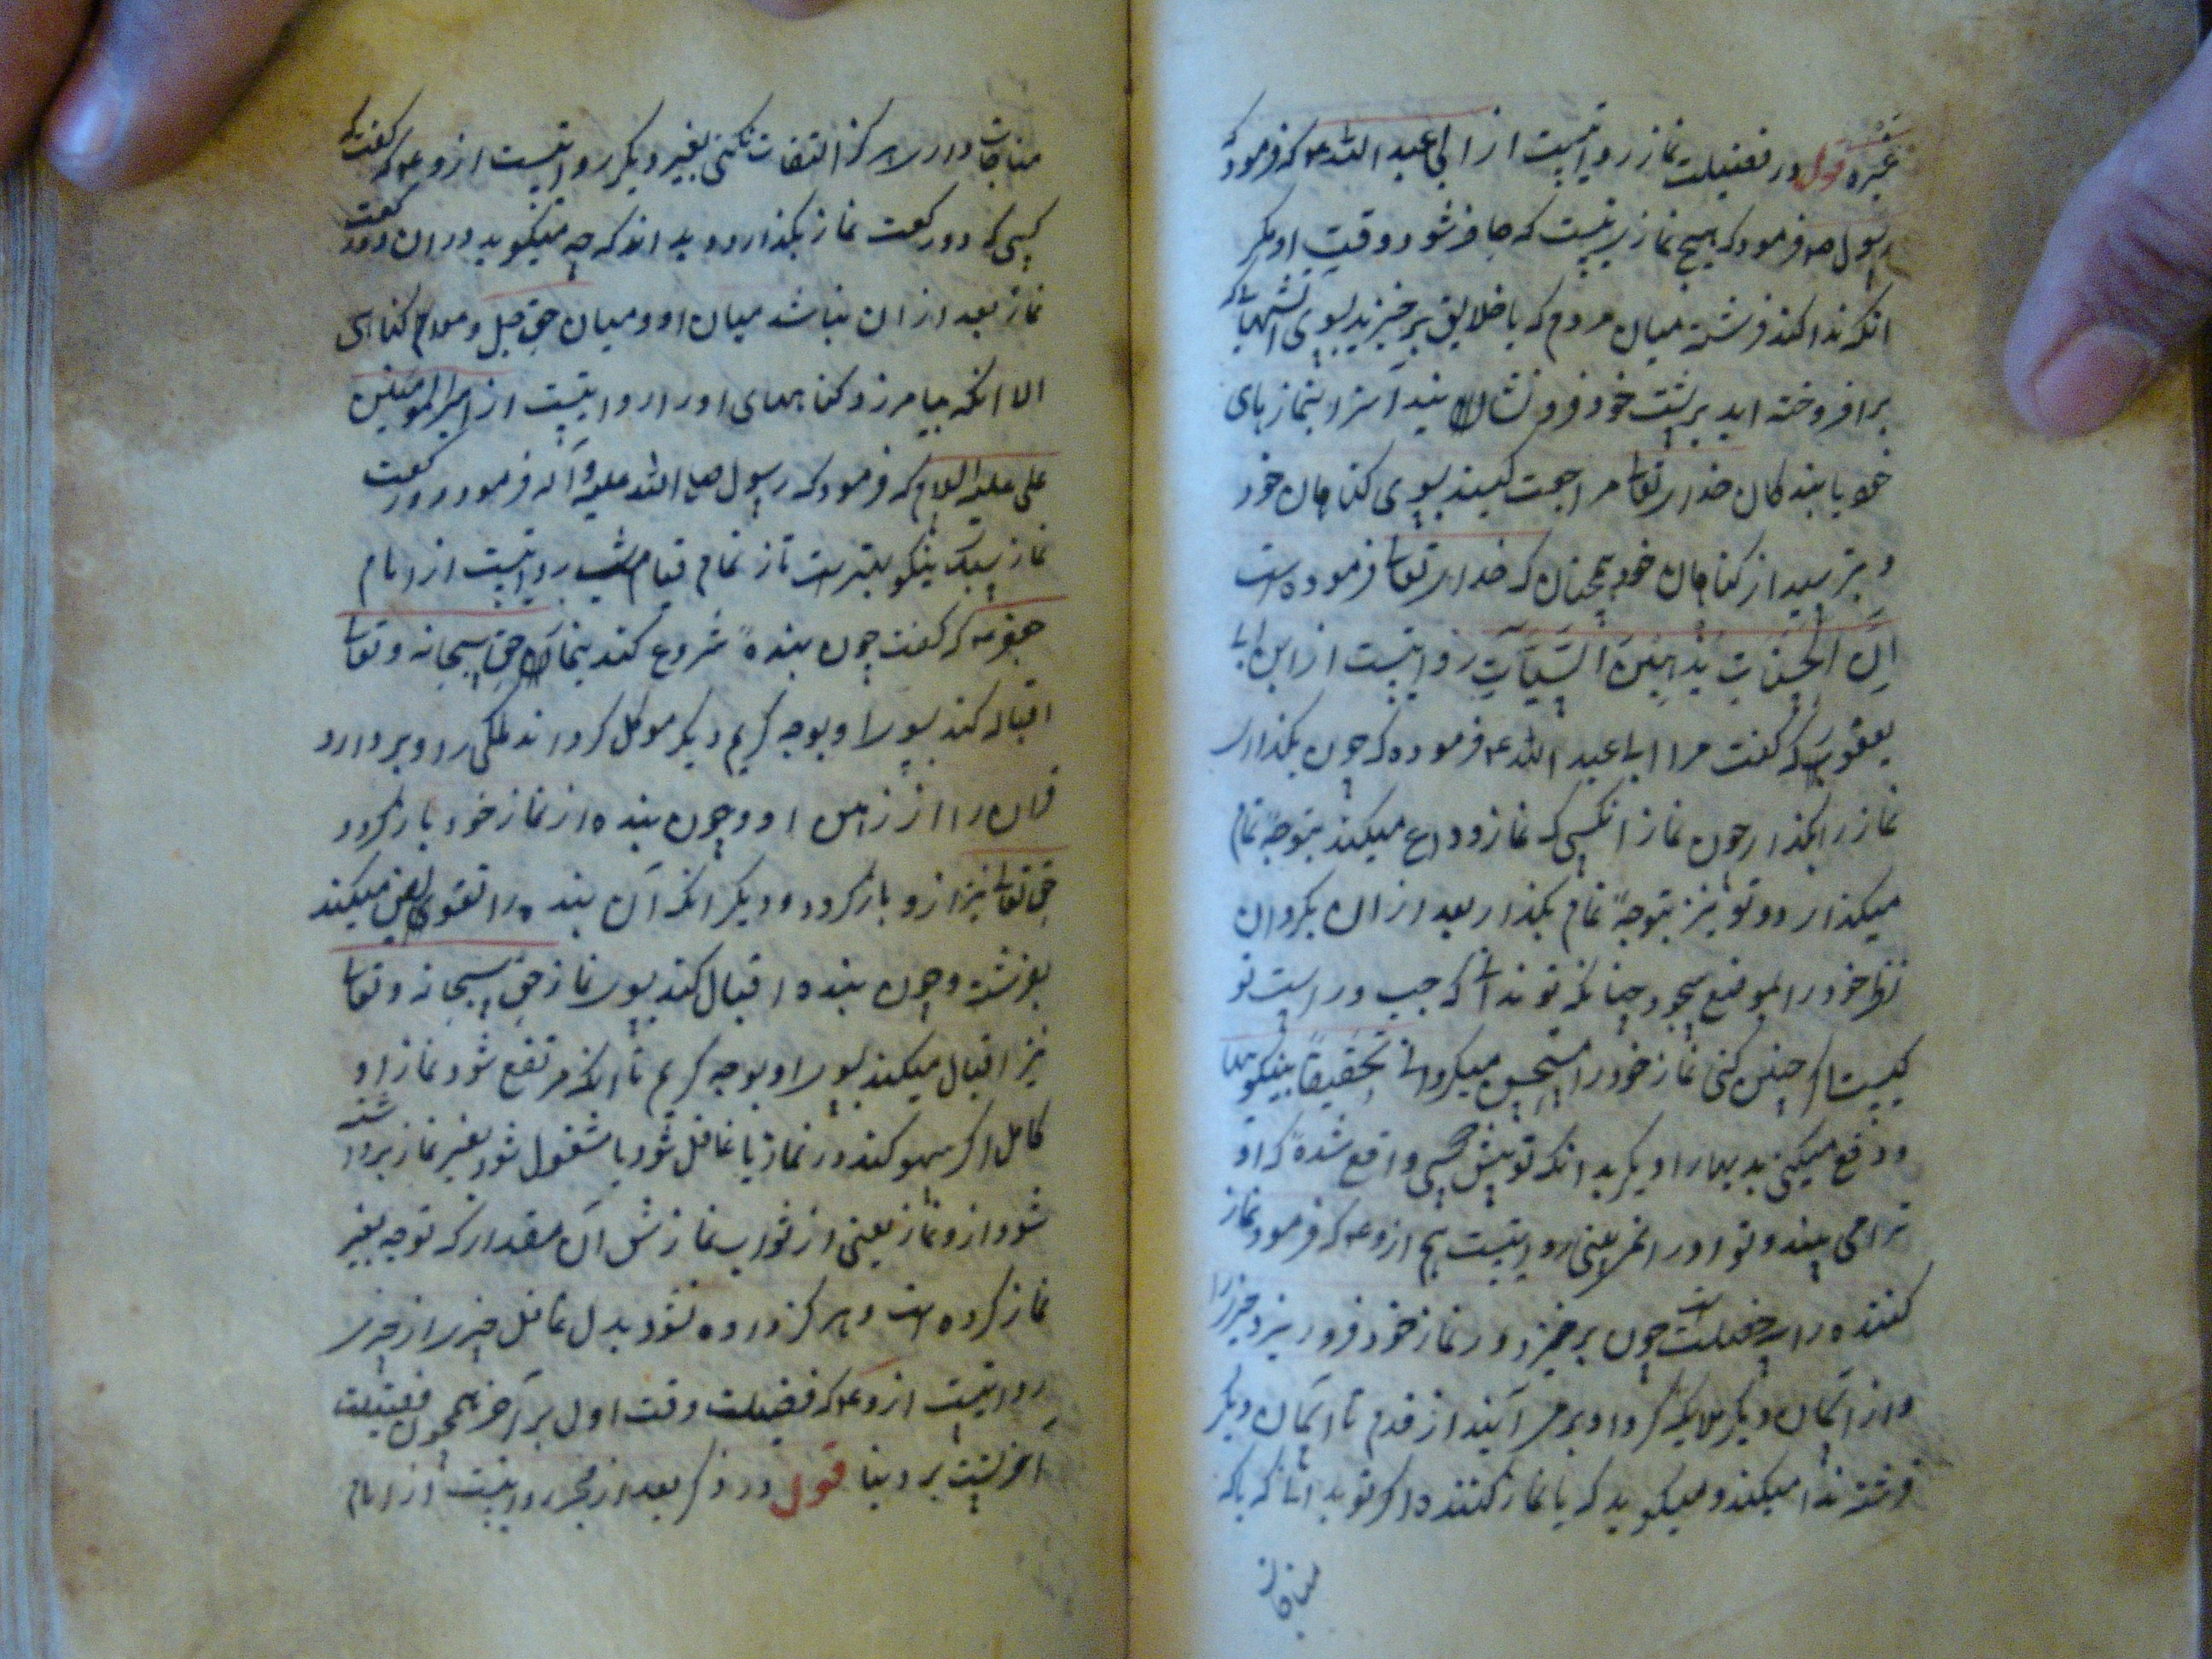 غیره قول در فضیلت نماز روایتیست از ابی عبد الله ع که فرمود که
رسول ص فرمود که هیچ نمازی نیست که حاضر شود وقت او مکر
انکه ندا کند فرشته میان مردم که یا خلایق برخیزید بسوی آتشهائی که
برافروخته اید بر پشت خود فرو نشانید آنرا بنمازهای
خود یا بندکان خدای تعالی مراجعت کنید بسوی کناهان خود
و بترسید از کناهان خود همچنان که خدای تعالی فرموده است
اِنَّ الْحَسَنَاتِ يُذْهِبْنَ السَّيِّئَاتِ روایتیست از ابن ابی
یعقوب که کفت مرا ابا عبد الله ع فرموده که چون بکذاری
نماز را بکذار چون نماز انکسی که نماز وداع میکند بتوجه تمام
میکذارد و تو نیز بتوجه تمام بکذار بعد از ان بکردان
نظر خود را بموضع سجود چنانکه تو ندانی که چپ و راست تو
کیست اکر چنین کنی نماز خود را مستحسن میکردانی تحقیقا نیکوییها
و دفع میکنی بدیها را دیکر بدانکه تو پیش کسی واقع شده که او
ترا می بیند و تو او را نمی بینی روایتیست هم ازو ع که فرمود نماز
کننده را سه خصلت است چون برخیزد در نماز خود فرو ریزد خیر را
و از آسمان دیکر ملایکه کرد او برمی آیند از قدم تا آسمان دیکر
فرشته ندا میکند و میکوید که یا نماز کننده اکر تو بدانی که با که
مناجات
مناجات داری هرکز التفات نکنی بغیر دیکر روایتیست ازو ع که کفت که
کسی که دو رکعت نماز بکذارد و بداند که چه میکوید در ان دو رکعت
نماز بعد از ان نباشد میان او و میان حق جل و علا هیچ کناهی
الا انکه بیامرزد کناههای او را روایتیست از امیر المومنین
علی علیه السلام که فرمود که رسول صلی الله علیه و آله فرمود دو رکعت
نماز سبک نیکو بهترست از تمام قیام شب روایتیست از امام
جعفر ع که کفت چون بنده شروع کند بنماز حق سبحانه و تعالی
اقبال کند بسوی او بوجه کریم دیکر موکل کرداند ملکی را و بردارد
قران را از دهن او و چون بنده از نماز خود باز کردد
حق تعالی نیز ازو باز کردد و دیکر انکه آن بنده را تفویض میکند
بفرشته و چون بنده اقبال کند بسوی نماز حق سبحانه و تعالی
نیز اقبال میکند بسوی او بوجه کریم تا انکه مرتفع شود نماز او
کامل اکر سهو کند در نماز یا غافل شود یا مشغول شود بغیر نماز برداشته
شود ازو نماز یعنی از ثواب نمازش آن مقدار که توجه بغیر
نماز کرده است و هرکز داده نشود بدل غافل چیزی از چیزی
روایتیست ازو ع که فضیلت وقت اول بر آخر همچون فضیلت
آخرتست بر دنیا قول در ذکر بعد از فجر روایتیست از امام